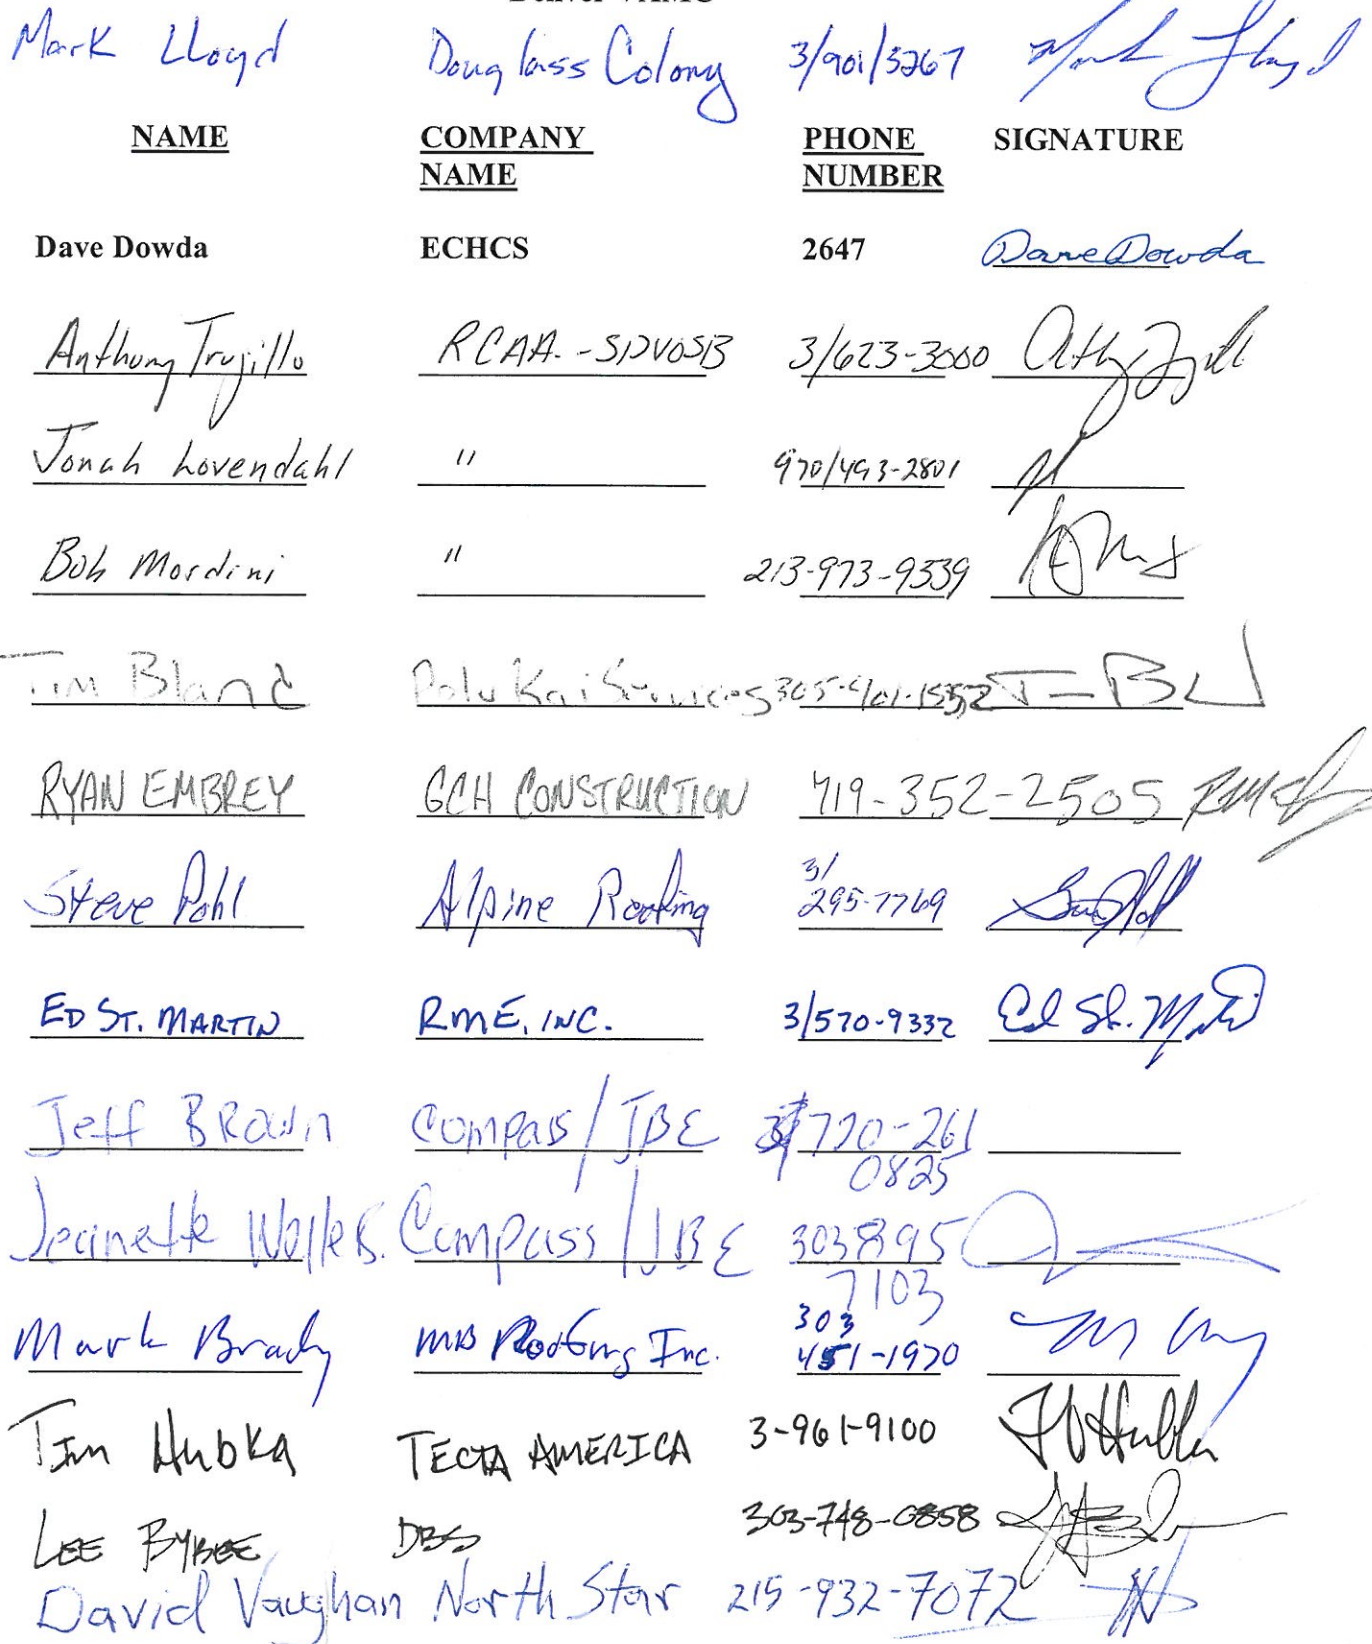 Denver VAMC
Mark Lloyd Douglass Colony 3/901/3267 Mark Lloyd
NAME COMPANY PHONE SIGNATURE
NAME NUMBER
Dave Dowda ECHCS 2647 Dave Dowda
Anthony Trujillo RCAA.-SDVOSB 3/623-3000
Jonah Lovendahl " 970/493-2801
Bob Mordini " 213-973-9339
Tim Bland Polu Kai Services 305-401-1552
RYAN EMBREY GCH CONSTRUCTION 719-352-2505
3/
Steve Pohl Alpine Roofing 295-7769
ED ST. MARTIN RME, INC. 3/570-9332 Ed St. Martin
Jeff BROWN Compass/JBE 720-261
0825
Jeanette Compass/JBE 303 895
7103
303
Mark Brady MB Roofing Inc. 451-1970
Tim Hubka TECTA AMERICA 3-961-9100
LEE BYBEE DBS 303-748-0858
David Vaughan North Star 215-932-7072